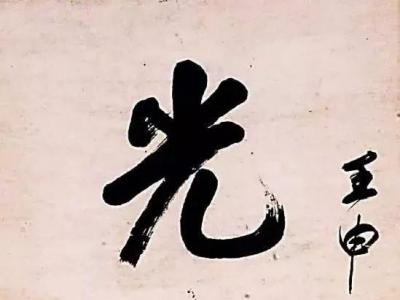 壬申
光